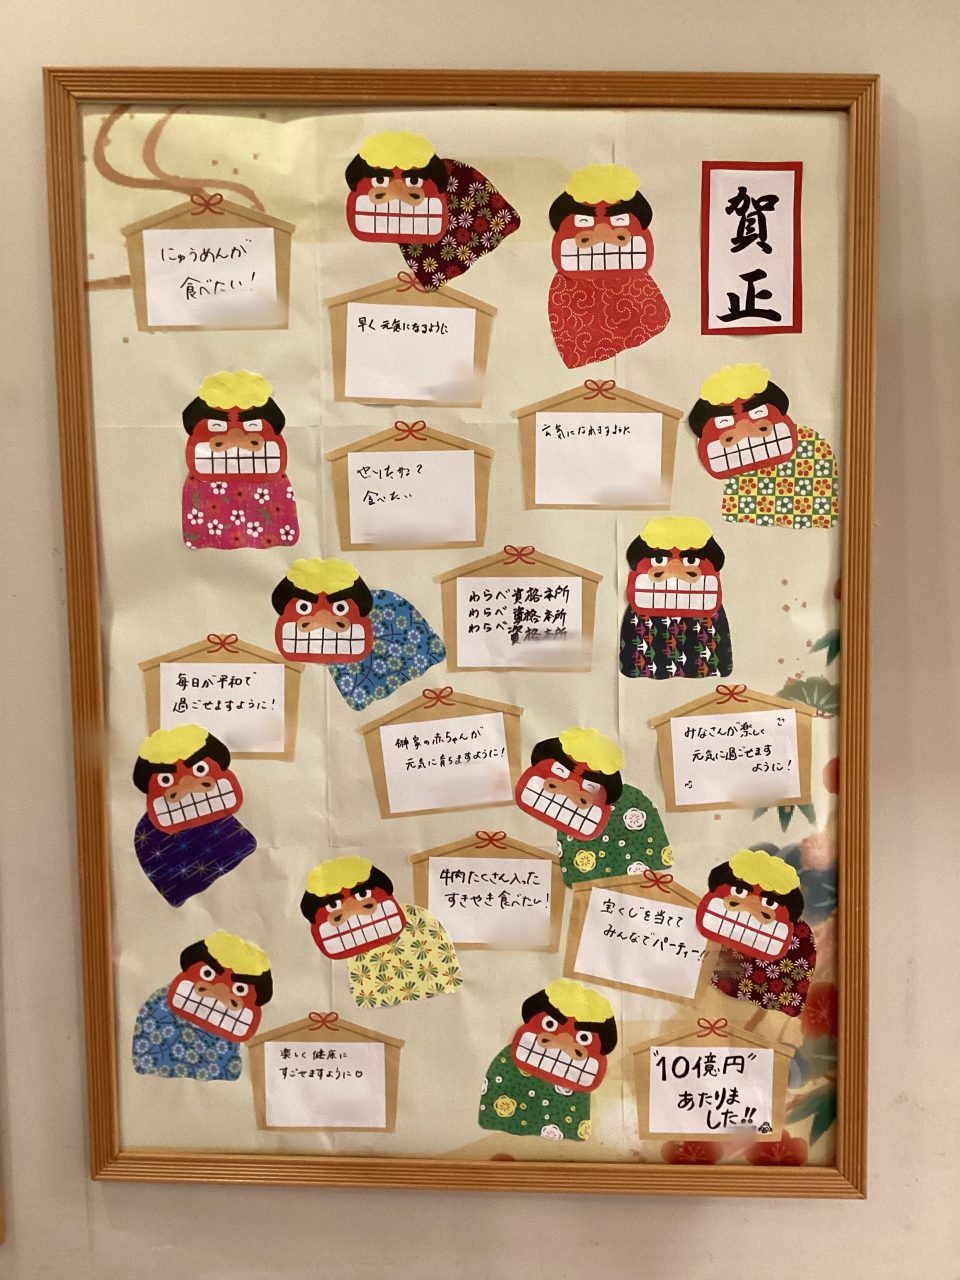 賀正
にゅうめんが
食べたい!
早く元気になるように
元気になれますように
食べたい
わらべ資格本所
わらべ資格本所
わらべ資格本所
毎日が平和で
過ごせますように!
家の赤ちゃんが
元気に育ちますように!
みなさんが楽しく
元気に過ごせます
ように!
牛肉たくさん入った
すきやき食べたい!
宝くじを当てて
みんなでパーティー!!
楽しく健康に
すごせますように♡
"10億円"
あたりま
した!!